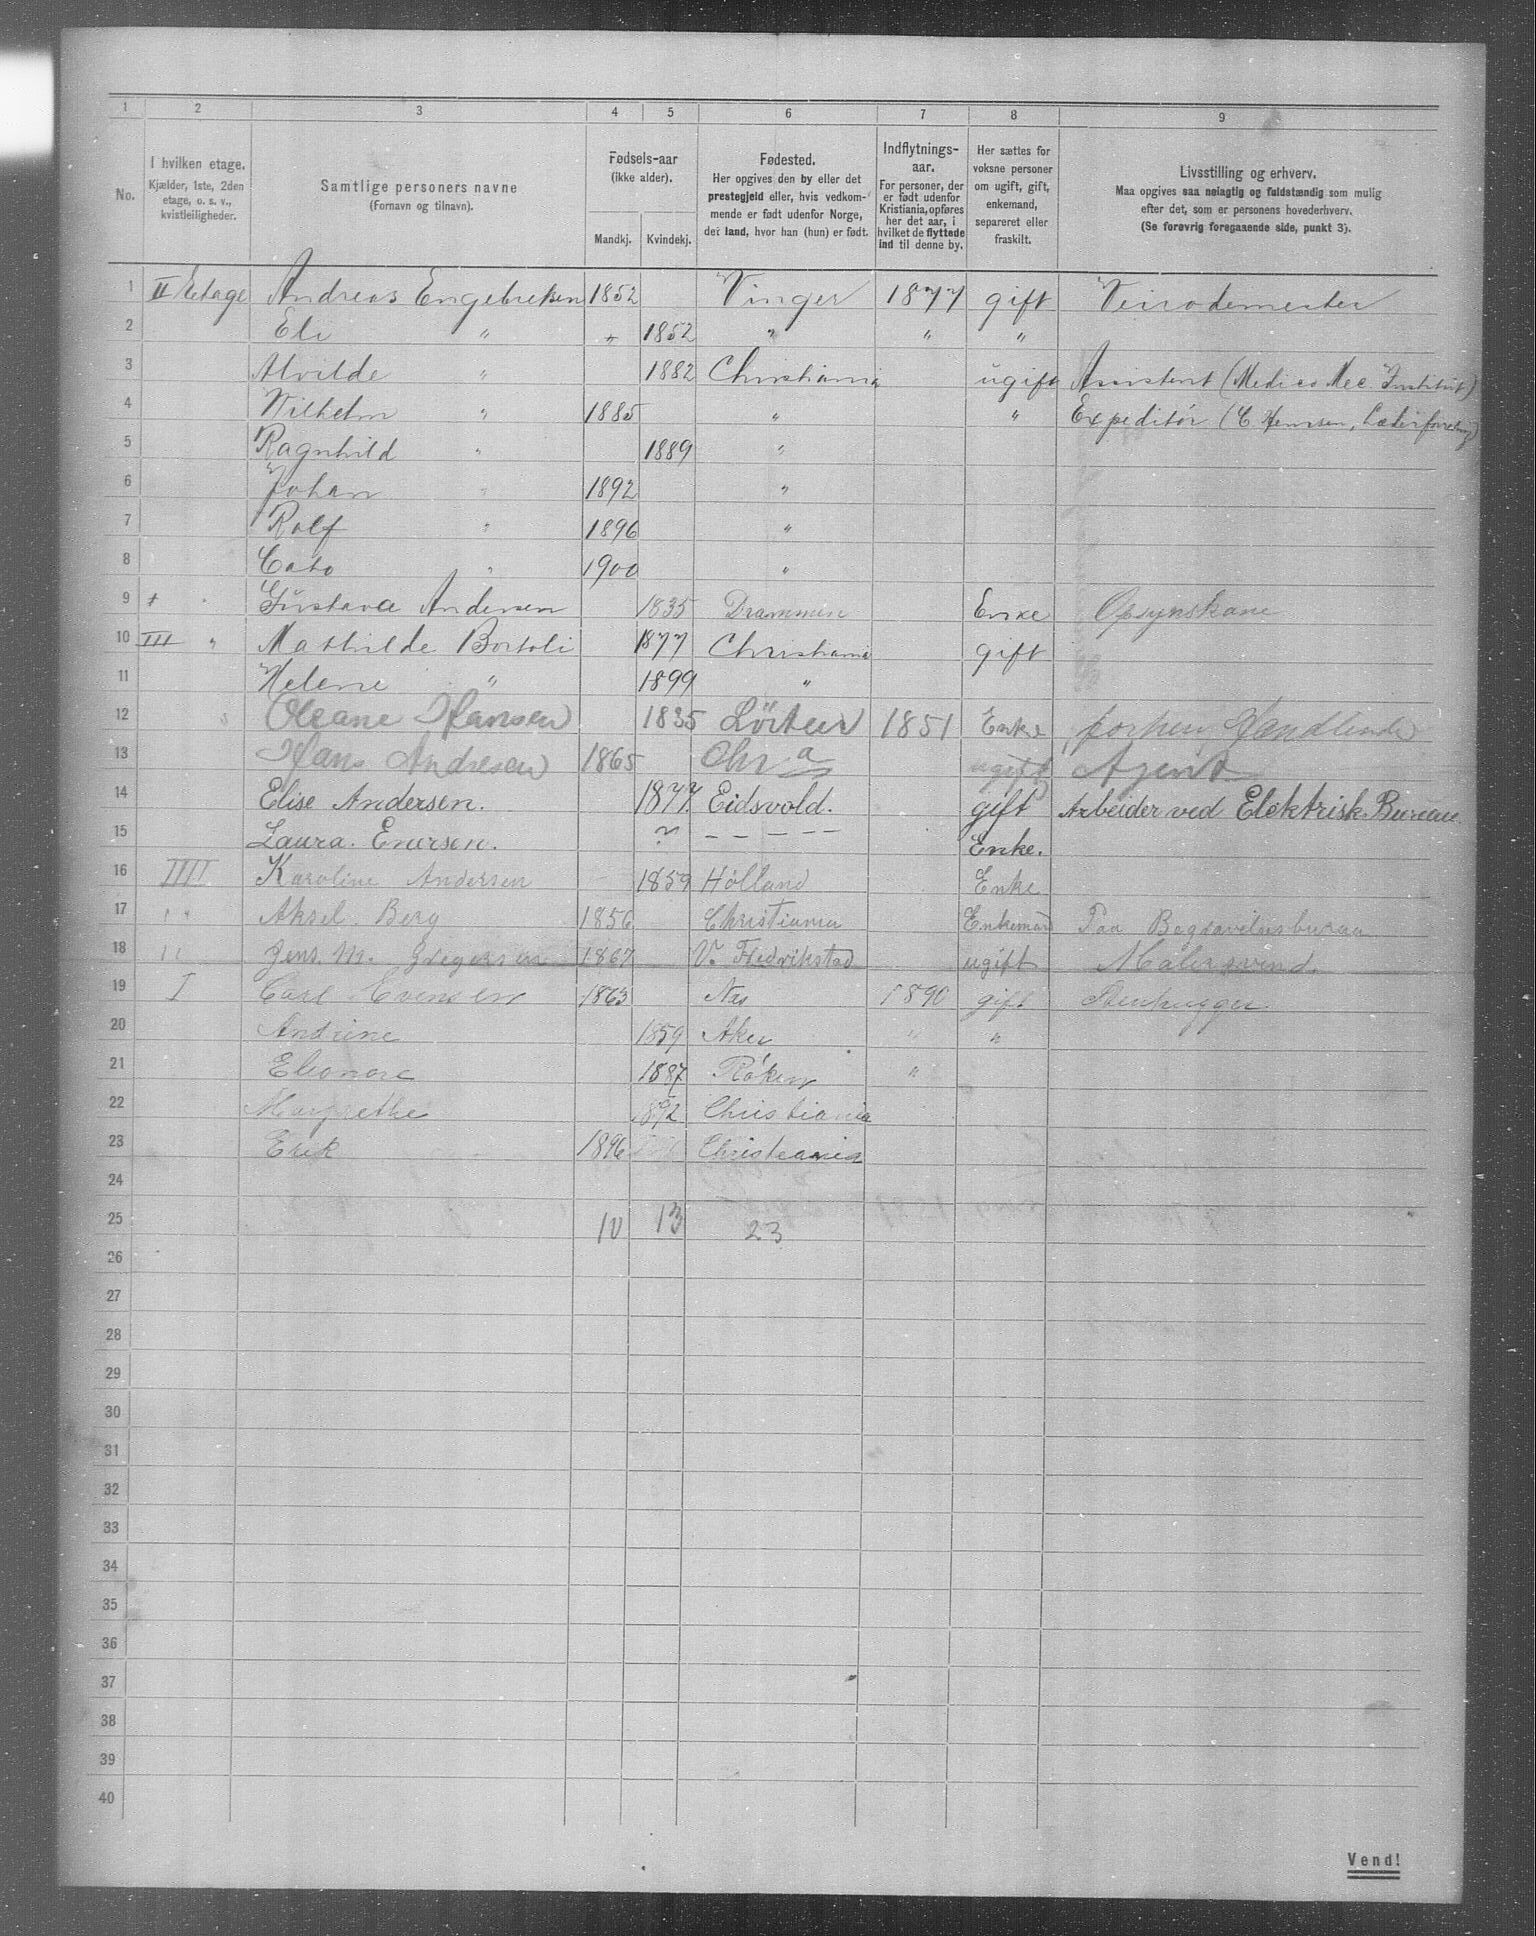 1 2 3 4 5 6 7 8 9
No.
I hvilken etage.
Kjælder, 1ste, 2den
etage, o. s. v.,
kvistleiligheder.
Samtlige personers navne
(Fornavn og tilnavn).
Fødsels-aar
(ikke alder).
Mandkj. Kvindekj.
Fødested.
Her opgives den by eller det
prestegjeld eller, hvis vedkom-
mende er født udenfor Norge,
det land, hvor han (hun) er født.
Indflytnings-
aar.
For personer, der
er født udenfor
Kristiania, opføres
her det aar, i
hvilket de flyttede
ind til denne by.
Her sættes for
voksne personer
om ugift, gift,
enkemand,
separeret eller
fraskilt.
Livsstilling og erhverv.
Maa opgives saa nøiagtig og fuldstændig som mulig
efter det, som er personens hovederhverv.
(Se forøvrig foregaaende side, punkt 3).
1 II Etage Andreas Engebretsen 1852 Vinger 1877 gift Veirodemester
2 Eli " " 1852 " " "
3 Alvilde " 1882 Christiania ugift Assistent (Medico Mec. Institut)
4 Vilhelm " 1885 " " Expeditør (C. Læderforretng)
5 Ragnhild " 1889 "
6 Johan " 1892 "
7 Rolf " 1896 "
8 Cato " 1900 "
9 Gustava Andersen 1835 Drammen Enke Opsynskone
10 III " Mathilde Bortoli 1877 Christiania gift
11 Helene " 1899 "
12 " Oleane Hansen 1835 Løiten 1851 Enke Handlende
13 Hans Andresen 1865 Chr a ugift Agent
14 Elise Andersen. 1877. Eidsvold. gift Arbeider ved Elektrisk Bureau
15 Laura. Enersen. ? - - - - - Enke.
16 IIII Karoline Andersen 1859 Holland Enke
17 " Aksel Berg 1856 Christiania Enkemand Paa Bogravelsesburaa
18 " Jens. M. Gregersen 1867 V. Fredrikstad ugift Malersvend.
19 I Carl Evensen 1863 Næs 1890 gift Stenhugger
20 Andrine 1859 Aker " "
21 Eleonore 1887 Røken "
22 Margrethe 1892 Christiania
23 Erik 1896 Christiania
24
25 10 13 23
26
27
28
29
30
31
32
33
34
35
36
37
38
39
40
Vend!